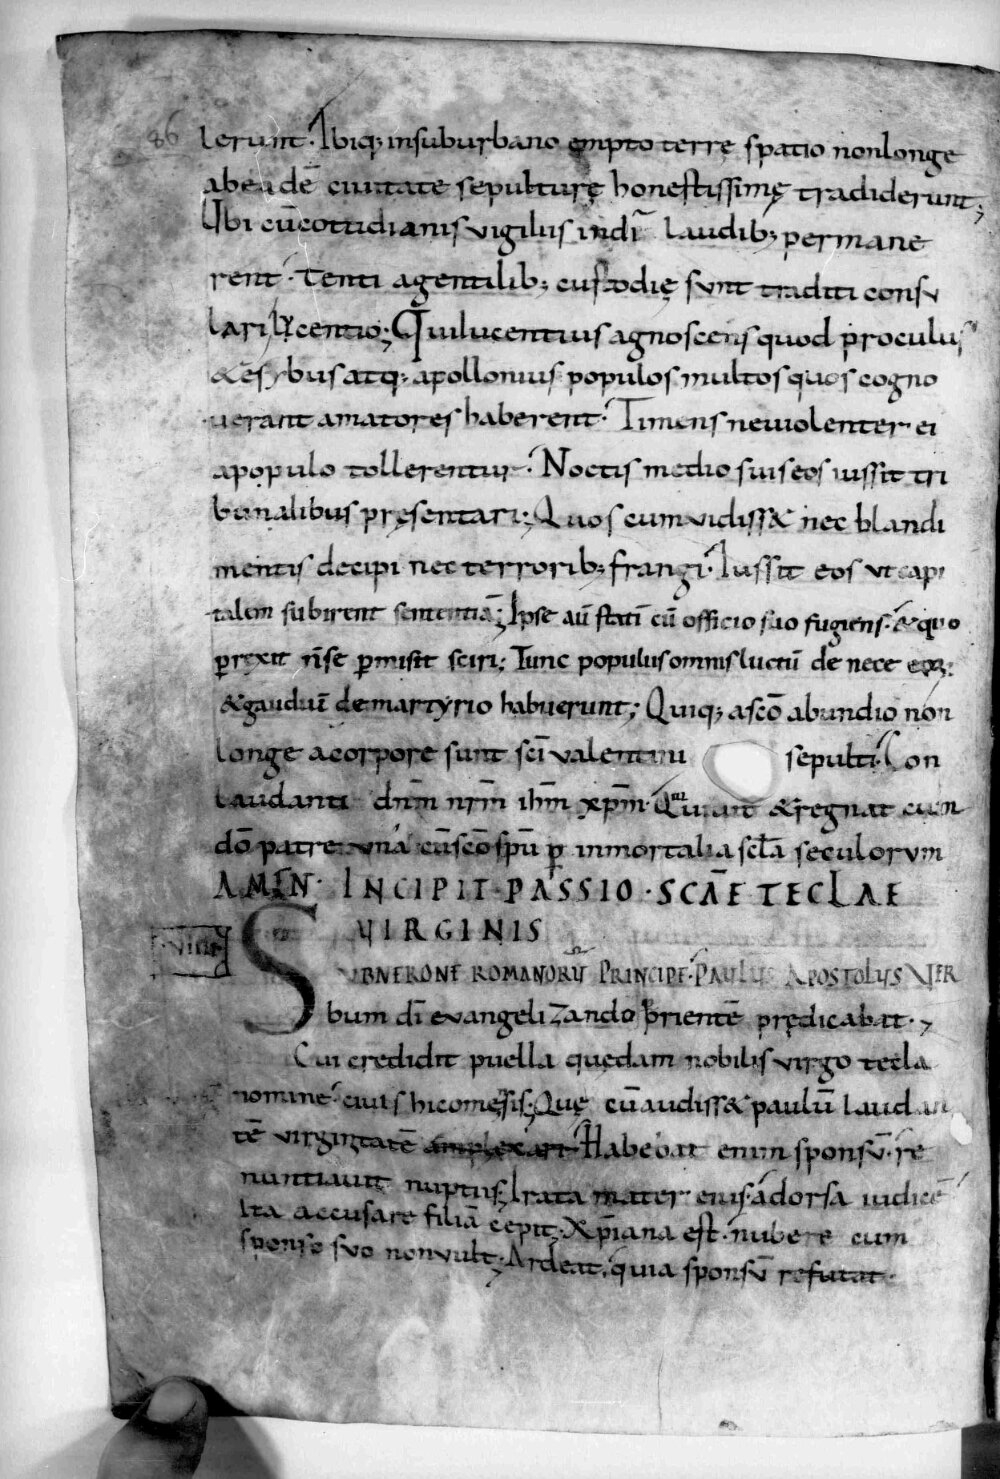 86
lerunt. Ibiq; insuburbano empto terrę spatio nonlonge
abeadē ciuitate sepulturę honestissimę tradiderunt;
Ubi cūcottidianis vigiliis indī laudib; permane
rent. Tenti agentilib; custodię sunt traditi consu
lari lucentio; Qui lucentius agnoscens quod proculus
& esybus atq; apollonius populos multos quos cogno
uerant amatores haberent. Timens neuiolenter ei
apopulo tollerentur. Noctis medio suis eos iussit tri
bunalibus pręsentari; Quos cum vidiss& nec blandi
mentis decipi nec terrorib; frangi. Iussit eos ut capi
talem subirent sententiā; Ipse aū statī cū officio suo fugiens. & quo
prexit n̄se pmisit sciri; Tunc populus omnis luctū de nece eoꝝ;
& gaudiū de martyrio habuerunt; Quiq; ascō abundio non
longe acorpore sunt scī valentini sepulti. Con
laudanti dnm̄ nrm̄ ihm̄ xpm̄. Qui uiuit & regnat cum
dō patre una cūscō spū p inmortalia scła seculorum
AMEN. INCIPIT. PASSIO. SCAE TECLAE
VIRGINIS
.VIIII.
SUBNERONE ROMANORŪ PRINCIPE. PAULUS APOSTOLUS VER
bum dī evangelizando orientē prędicabat.
Cui credidit puella quędam nobilis virgo tecla
nomine. ciuis hiconiesis; Quę cūaudiss& paulū laudan
tē virginitatē amplexari. Habebat enim sponsū. re
nuntiauit nuptiis; Irata mater eius. adorsa iudicē
Ita accusare filiā cepit; Xpiana est. nubere cum
sponso suo nonvult; Ardeat. quia sponsū refutat.